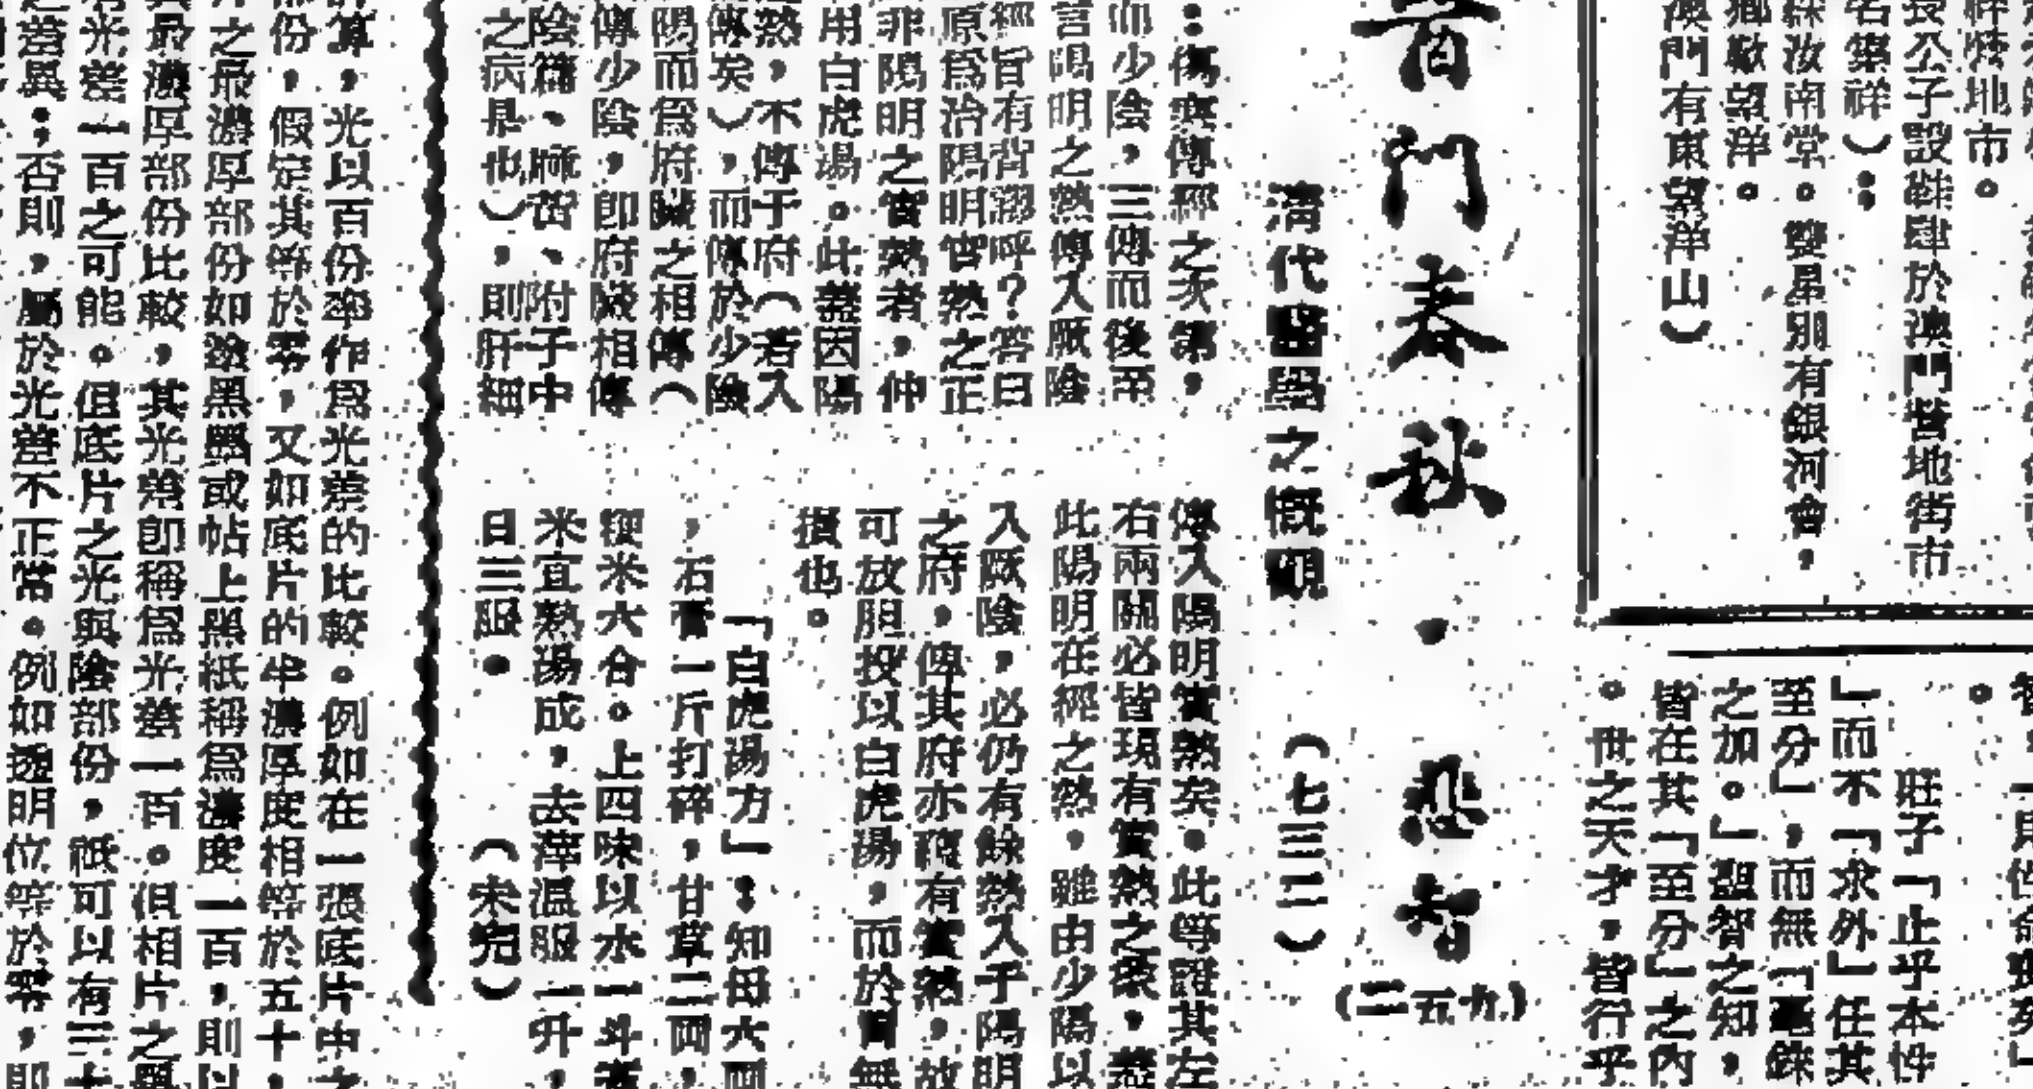 祥
長公子設鞋肆於澳門營地街市
名榮祥）：
綵汝南堂。雙星別有銀河會，
鄉歌望洋。
澳門有東望洋山）
旺子「止乎本性
」而不「求外」任其
至分」，而無「毫銖
之加。」聖智之知，
皆在其「至分」之內
。世之天才，皆行乎
音門春秋・悲智
（二五九）
清代醫學之概觀　（七三二）
：傷寒傳經之次第，
而少陰，三傳而後至
言陽明之熱傳入厥陰
經旨有背謬呼？答曰
原爲治陽明實熱之正
非陽明之實熱者，仲
用白虎湯。此蓋因陽
熱，不傳于府（若入
傳矣），而傳於少陰
陽而爲府臟之相傳（
傳少陰，卽府臟相傳
陰篇、麻黃、附子中
之病是也），則肝細
傳入陽明實熱矣。此等證其左
右兩關必皆現有實熱之象，蓋
此陽明在經之熱，雖由少陽以
入厥陰，必仍有餘熱入于陽明
之府，俾其府亦蘊有實熱，故
可放胆投以白虎湯，而於胃無
損也。
「白虎湯方」：知母六兩
，石膏一斤打碎，甘草二兩，
粳米六合。上四味以水一斗煮
米宜熟湯成，去滓溫服一升，
日三服。　（未完）
計算，光以百份率作爲光差的比較。例如在一張底片中之
部份，假定其等於零，又如底片的半濃厚度相等於五十，
片之最濃厚部份如說黑墨或帖上黑紙稱爲濃度一百，則以
與最濃厚部份比較，其光差卽稱爲光差一百。但相片之與
光差一百之可能。但底片之光與陰部份，祇可以有三十
之差異；否則，屬於光差不正常。例如透明位等於零，卽